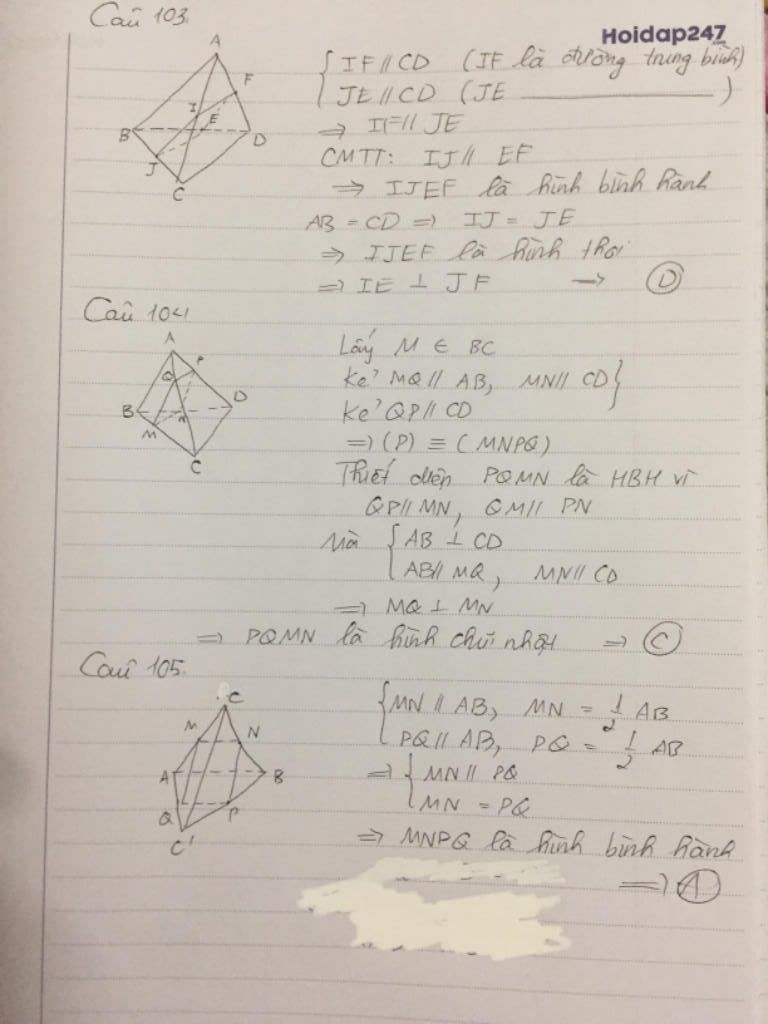 Câu 103.
Hoidap247
.com
A
F
I
E
B
D
J
C
{ IF // CD (IF là đường trung bình)
JE // CD (JE ——— )
⇒ IF // JE
CMTT: IJ // EF
⇒ IJEF là hình bình hành
AB = CD ⇒ IJ = JE
⇒ IJEF là hình thoi
⇒ IE ⊥ JF → D
Câu 104
A
P
Q
D
B
N
M
C
Lấy M ∈ BC
Kẻ MQ // AB, MN // CD }
Kẻ QP // CD
⇒ (P) ≡ (MNPQ)
Thiết diện PQMN là HBH vì
QP // MN, QM // PN
Mà { AB ⊥ CD
AB // MQ, MN // CD
⇒ MQ ⊥ MN
⇒ PQMN là hình chữ nhật ⇒ C
Câu 105.
C
M
N
A
B
Q
P
C'
{ MN // AB, MN = 1/2 AB
PQ // AB, PQ = 1/2 AB
⇒ { MN // PQ
MN = PQ
⇒ MNPQ là hình bình hành
⇒ A